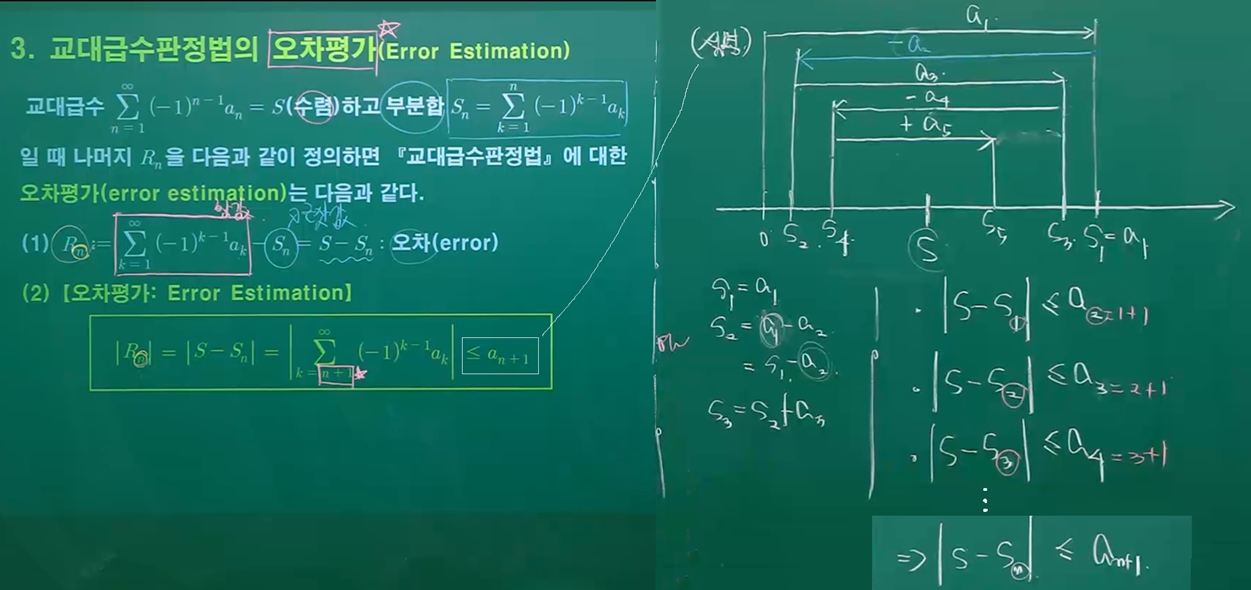 3. 교대급수판정법의 오차평가(Error Estimation)
교대급수 ∑_{n=1}^{∞} (-1)^{n-1}a_n = S(수렴)하고 부분합 S_n = ∑_{k=1}^{n} (-1)^{k-1}a_k
일 때 나머지 R_n을 다음과 같이 정의하면 『교대급수판정법』에 대한
오차평가(error estimation)는 다음과 같다.
참값 근삿값
(1) R_n := ∑_{k=1}^{∞} (-1)^{k-1}a_k - S_n = S - S_n : 오차(error)
(2) 【오차평가: Error Estimation】
|R_n| = |S - S_n| = |∑_{k=n+1}^{∞} (-1)^{k-1}a_k| ≤ a_{n+1}
(설명)
a_1
-a_2
a_3
-a_4
+a_5
0 S_2 S_4 S S_5 S_3 S_1 = a_1
S_1 = a_1
S_2 = a_1 - a_2
= S_1 - a_2
S_3 = S_2 + a_3
· |S - S_1| ≤ a_2 = 1+1
· |S - S_2| ≤ a_3 = 2+1
· |S - S_3| ≤ a_4 = 3+1
⋮
⇒ |S - S_n| ≤ a_{n+1}.